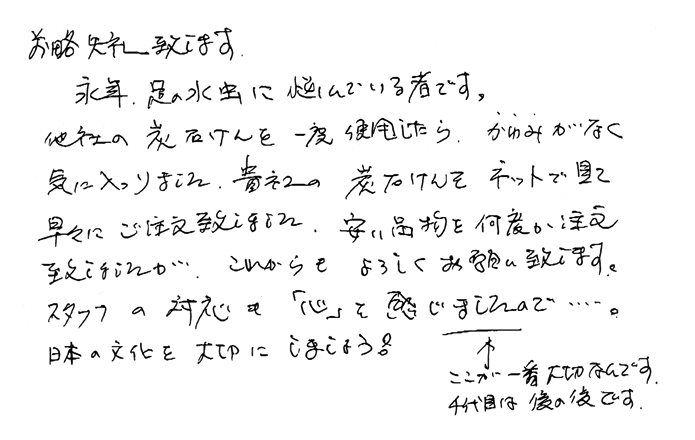 前略 失礼致します.
永年、足の水虫に悩んでいる者です。
他社の炭石けんを一度使用したら、かゆみがなく
気に入りました、貴社の炭石けんをネットで見て
早々にご注文致しました、安い品物を何度か注文
致しましたが、これからもよろしくお願い致します。
スタッフの対応も「心」を感じましたので……。
日本の文化を大切にしましょう。
ここが一番大切なんです.
千代目は 後の後です.